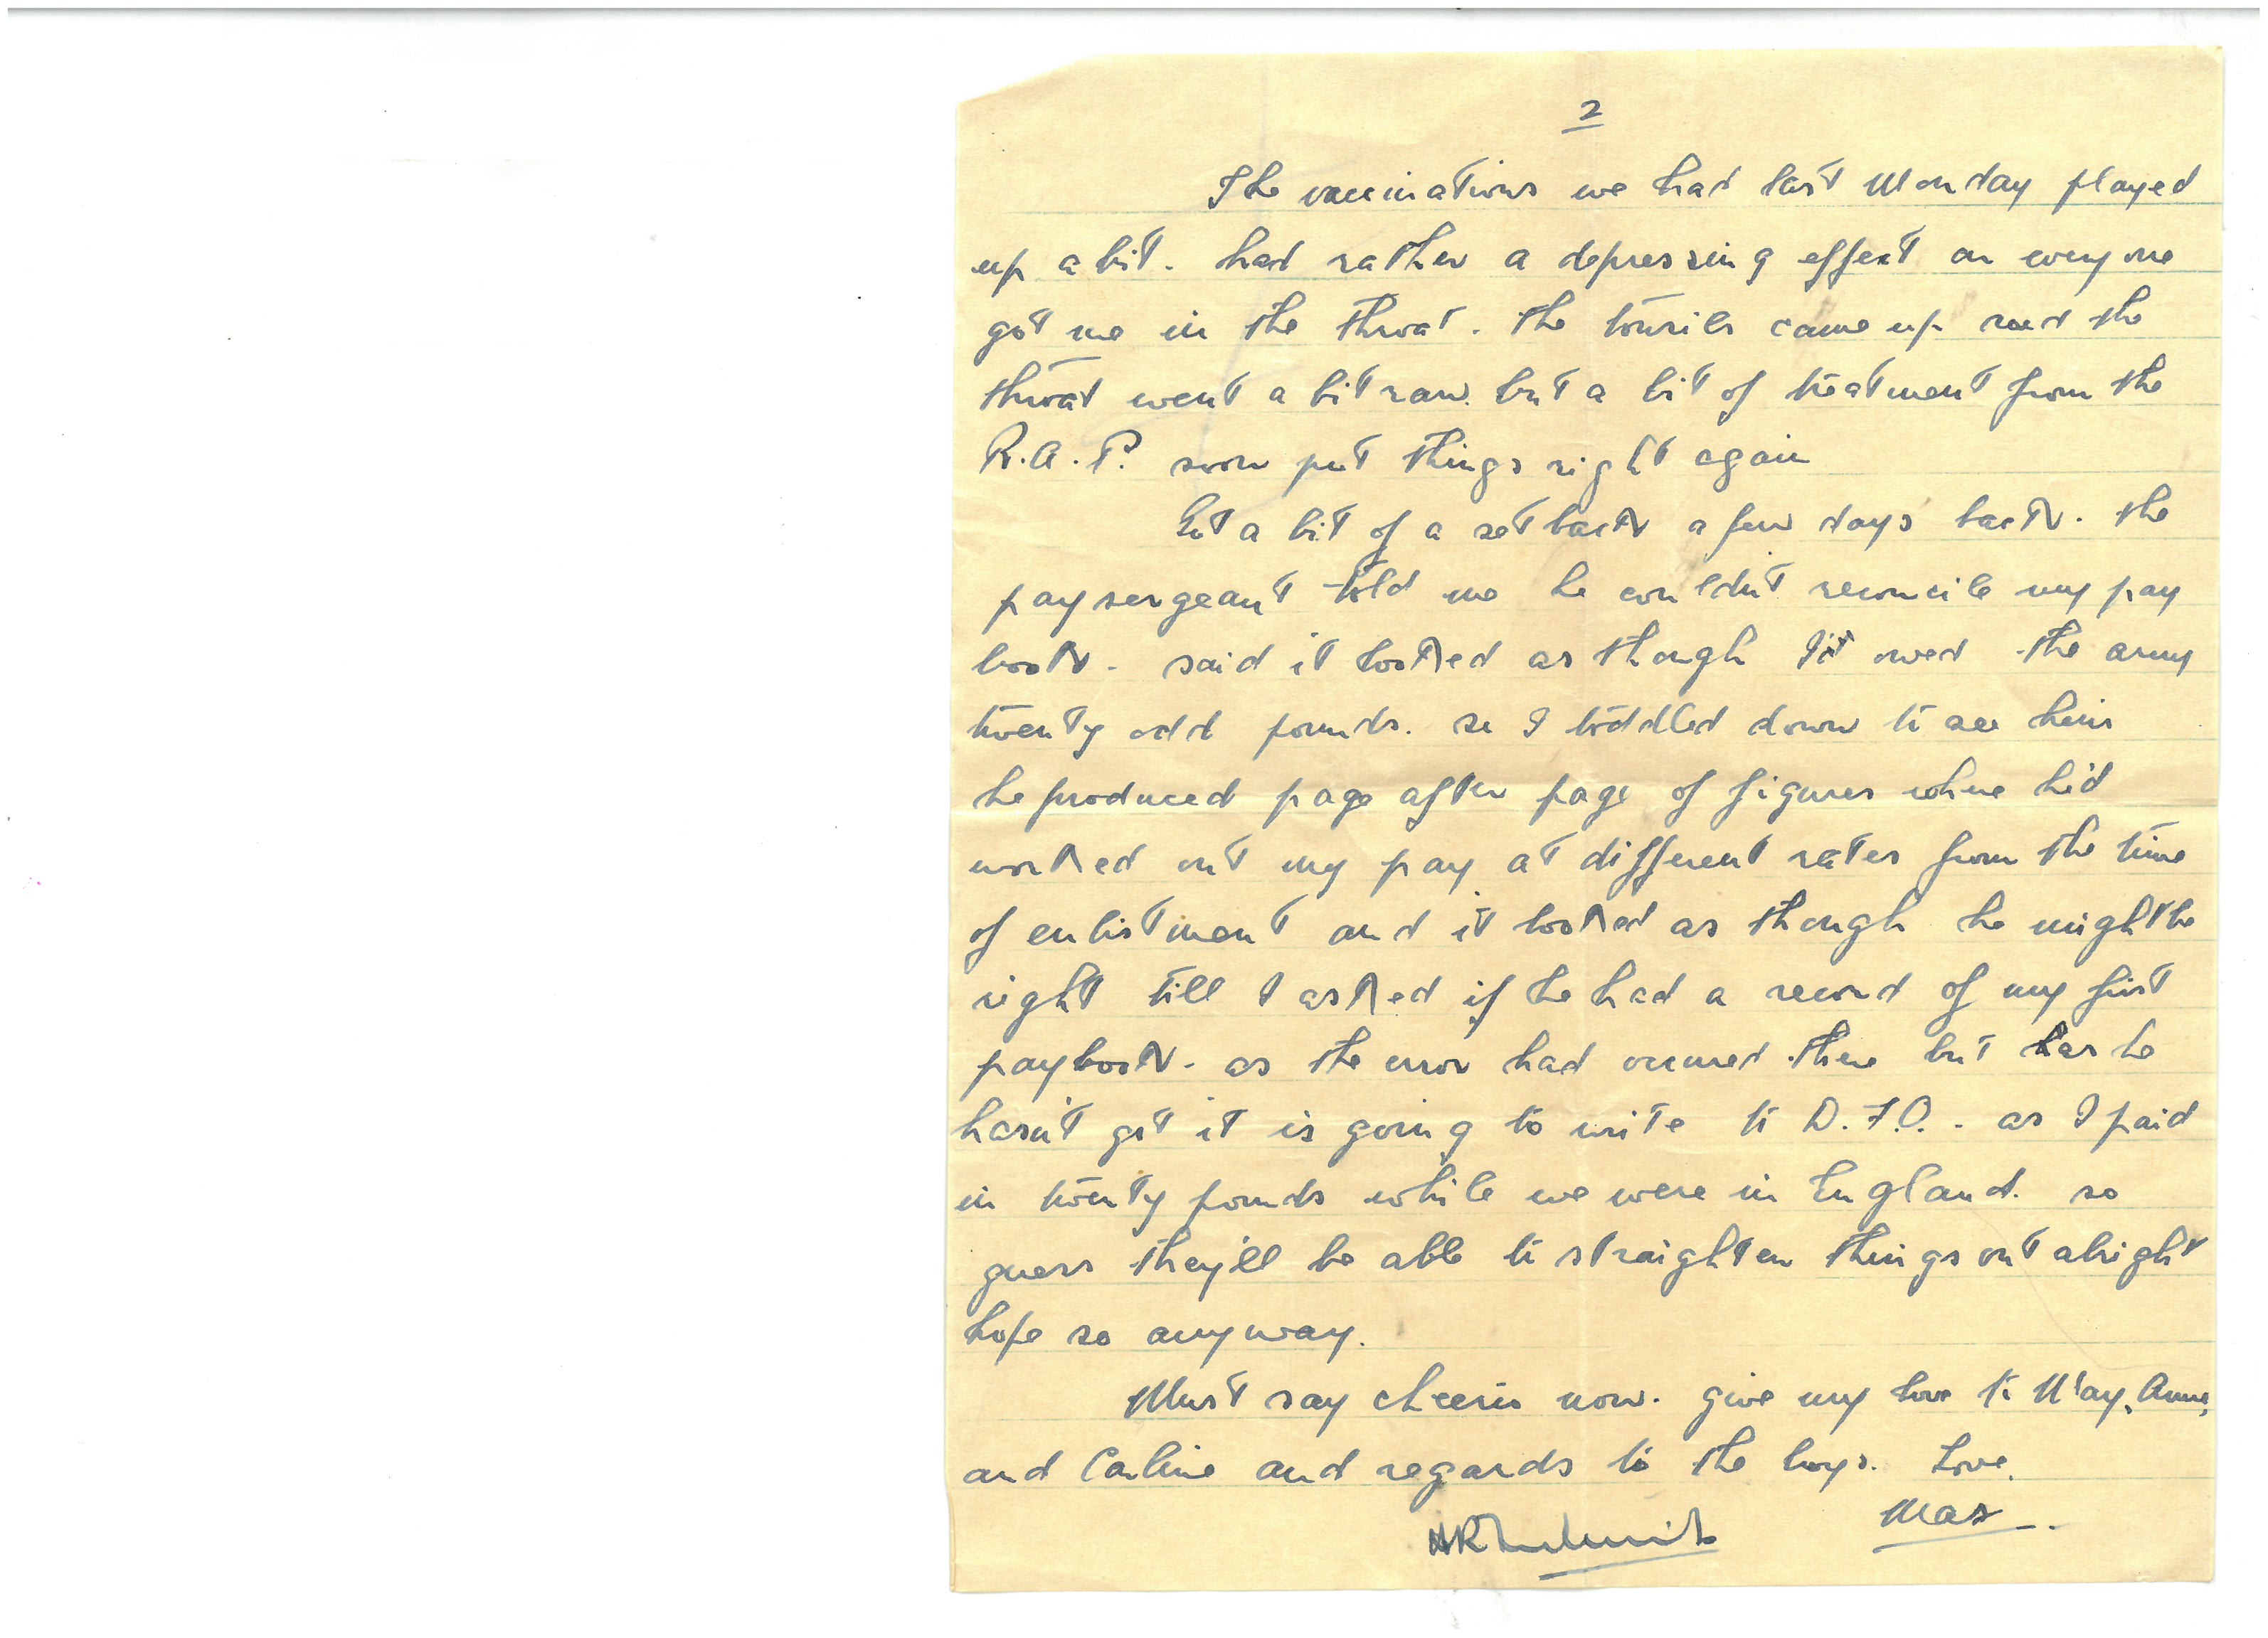 2
The vaccinations we had last Monday played
up a bit. had rather a depressing effect on everyone
got me in the throat. the tonsils came up and the
throat went a bit raw. but a bit of treatment from the
R.A.P. soon put things right again
Got a bit of a setback a few days back. the
pay sergeant told me he couldn't reconcile my pay
book - said it looked as though I'd owed the army
twenty odd pounds. so I toddled down to see him
he produced page after page of figures where he'd
worked out my pay at different rates from the time
of enlistment and it looked as though he might be
right till I asked if he had a record of my first
paybook - as the error had occured there but as he
hasn't got it is going to write to D.F.O. - as I paid
in twenty pounds while we were in England. so
guess they'll be able to straighten things out alright
hope so anyway.
Must say cheerio now. give my love to May, Anne,
and Carline and regards to the boys. Love.
Mas